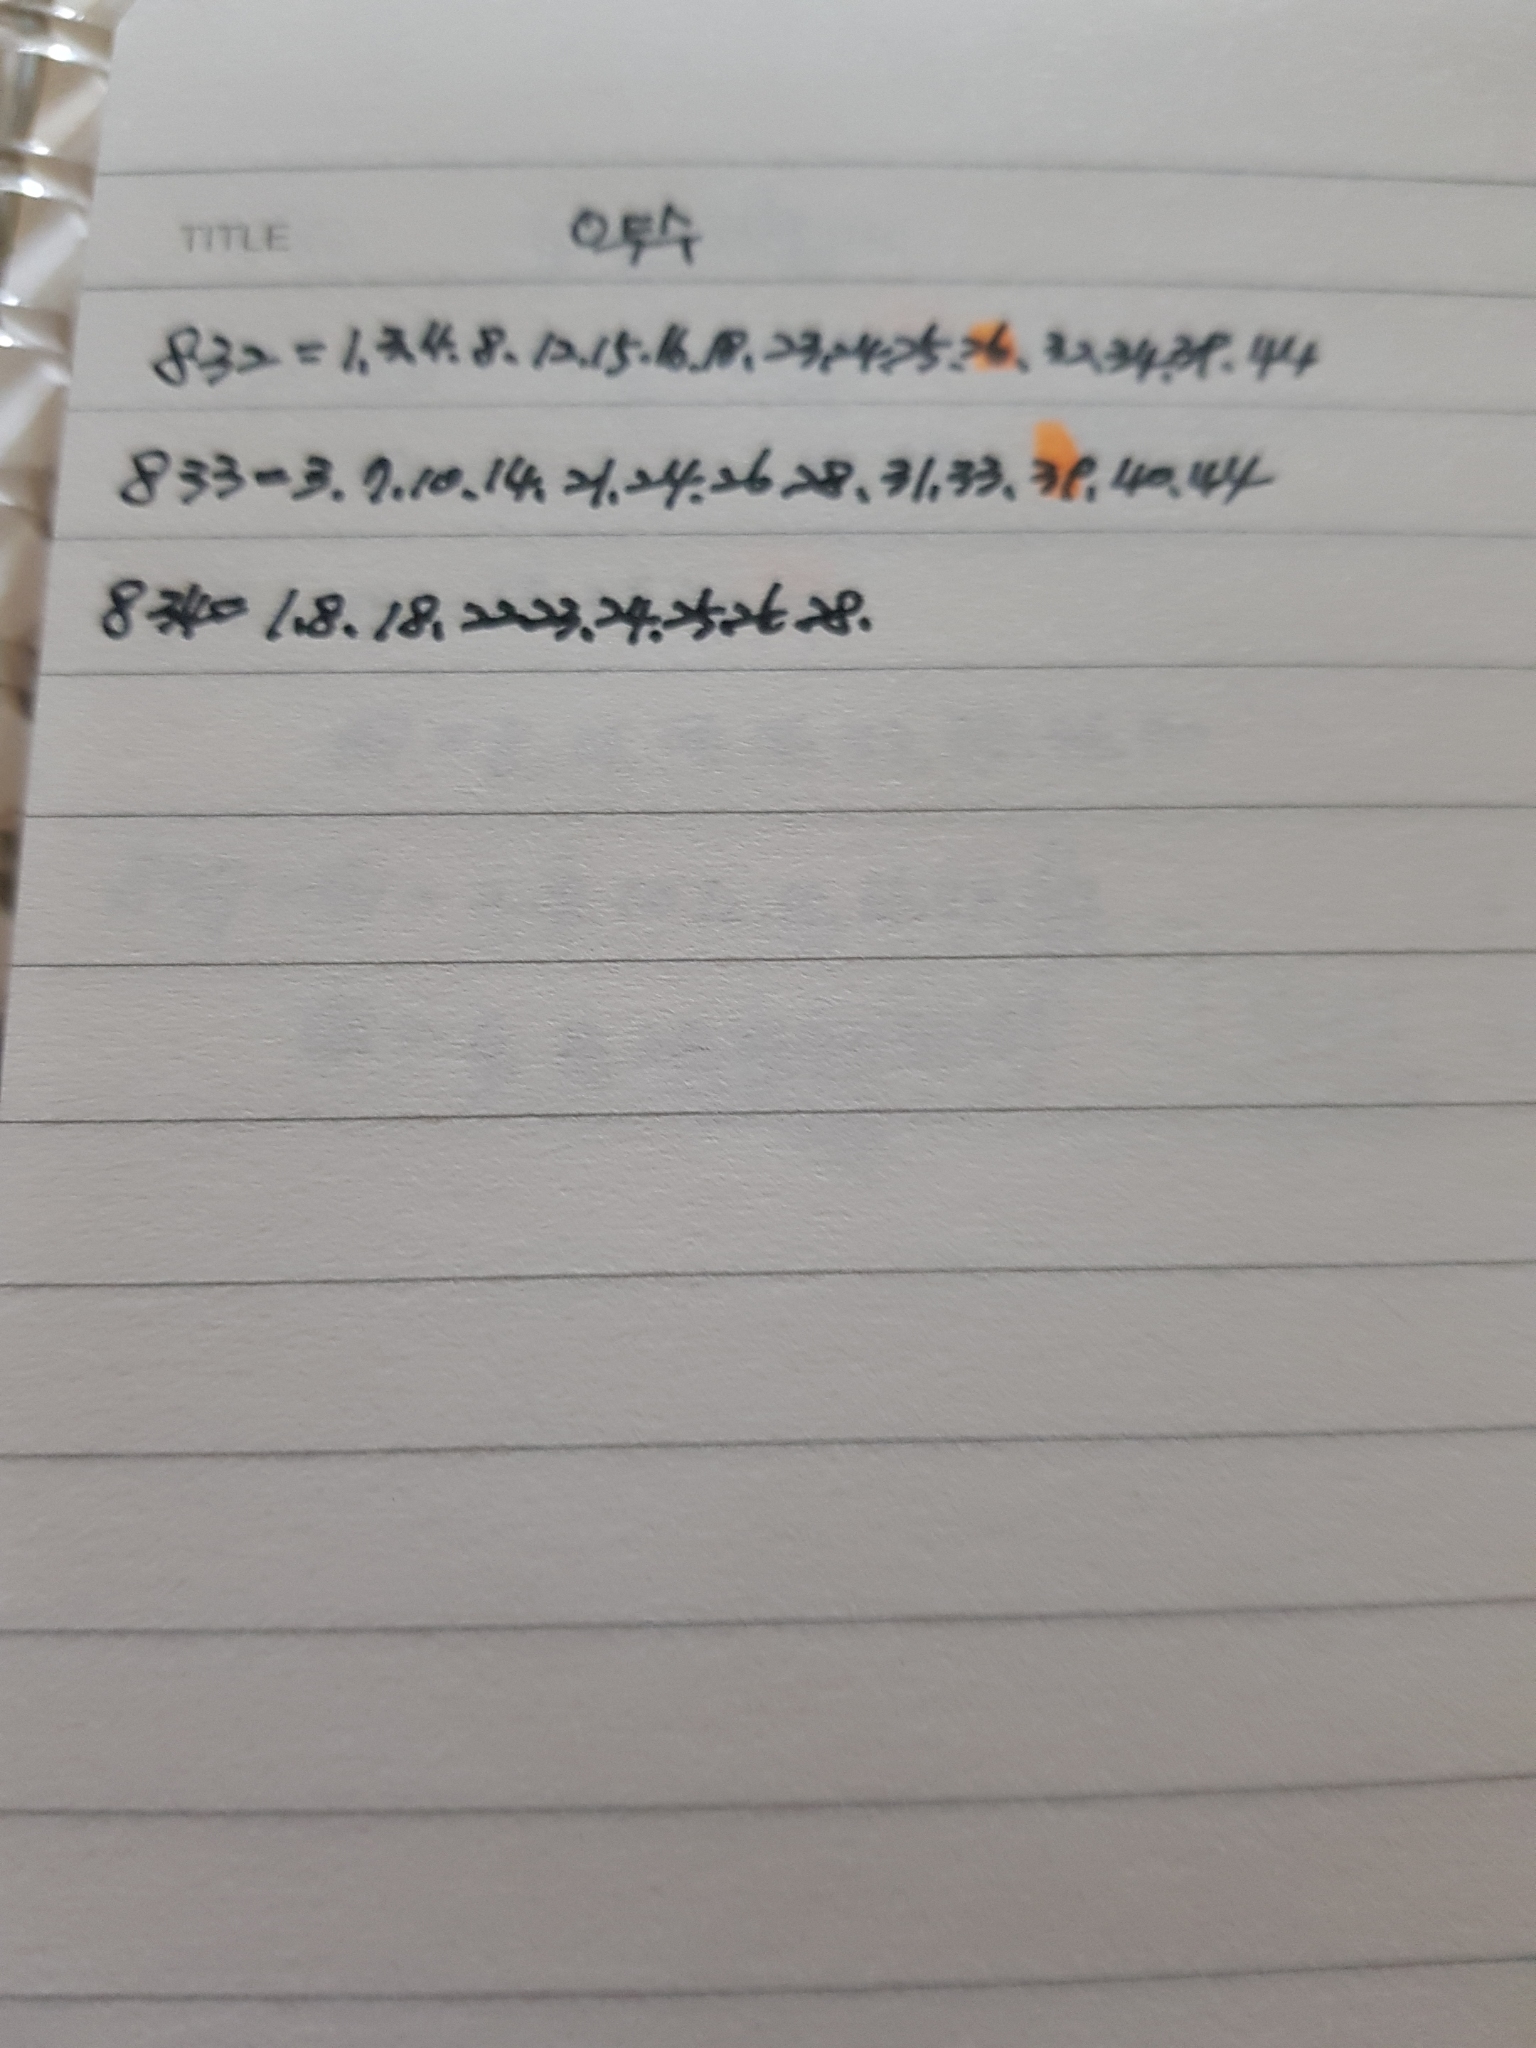 TITLE 오투수
832 = 1.3.4.8.12.15.16.18.23.24.25.26.32.34.38.44
833 = 3.7.10.14.21.24.26.28.31.33.38.40.44
834 = 1.8.18.22.23.24.25.26.28.